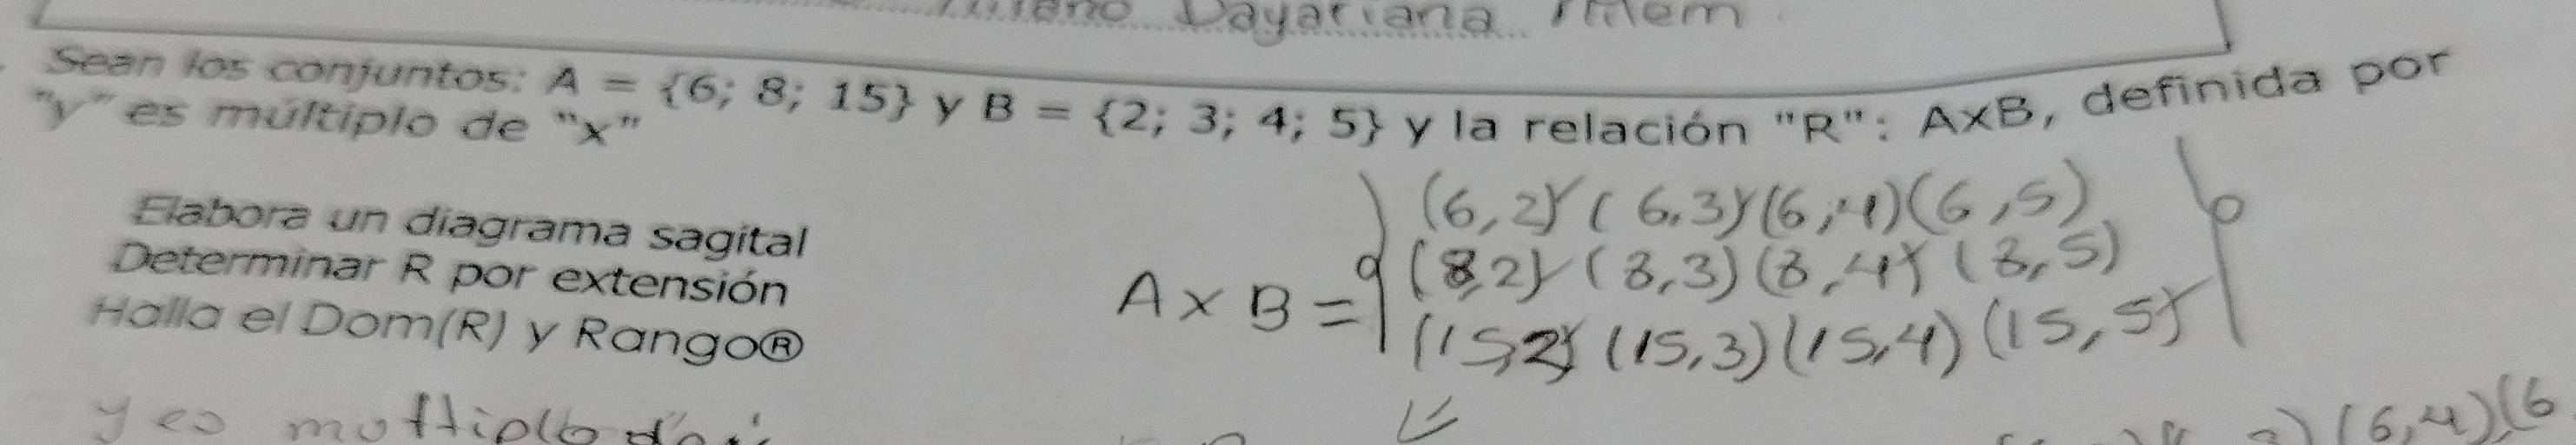 Dayariana
Sean los conjuntos: A = {6; 8; 15} y B = {2; 3; 4; 5} y la relación "R": AxB, definida por
"y" es múltiplo de "x"
Elabora un diagrama sagital
Determinar R por extensión
Halla el Dom(R) y Rango®
(6,2) (6,3) (6,4) (6,5)
(8,2) (8,3) (8,4) (8,5)
A x B = {
(15,2) (15,3) (15,4) (15,5) }
y es multiplo de
(6,4) (6